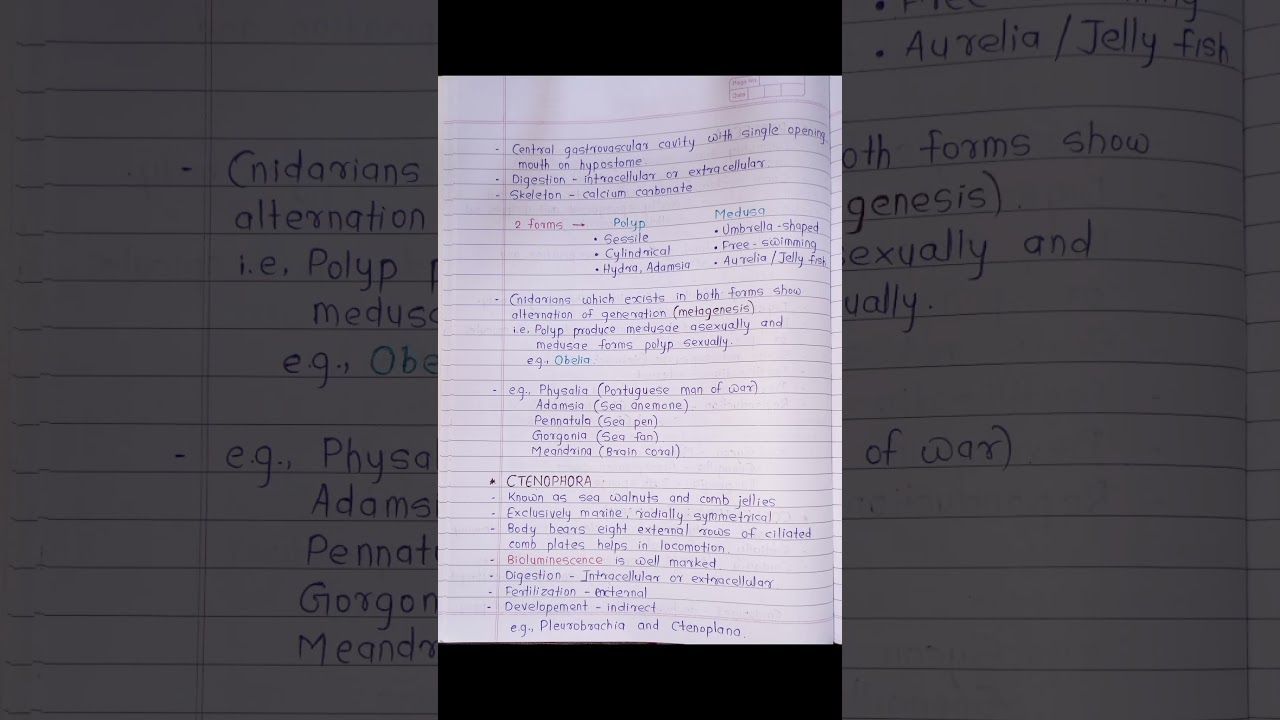 Page No.
Date
- Central gastrovascular cavity with single opening
mouth on hypostome.
- Digestion - intracellular or extracellular.
- Skeleton - calcium carbonate
2 forms → Polyp Medusa
• Sessile • Umbrella-shaped
• Cylindrical • Free-swimming
• Hydra, Adamsia • Aurelia / Jelly fish
- Cnidarians which exists in both forms show
alternation of generation (metagenesis).
i.e, Polyp produce medusae asexually and
medusae forms polyp sexually.
e.g., Obelia
- e.g., Physalia (Portuguese man of war)
Adamsia (Sea anemone)
Pennatula (Sea pen)
Gorgonia (Sea fan)
Meandrina (Brain coral)
* CTENOPHORA :
- Known as sea walnuts and comb jellies
- Exclusively marine, radially symmetrical
- Body bears eight external rows of ciliated
comb plates helps in locomotion.
- Bioluminescence is well marked.
- Digestion - Intracellular or extracellular
- Fertilization - external
- Developement - indirect.
e.g., Pleurobrachia and Ctenoplana.
- Cnidarians
alternation
i.e, Polyp
e.g.,
- e.g.,
• Aurelia / Jelly fish
forms show
genesis).
and
of war)